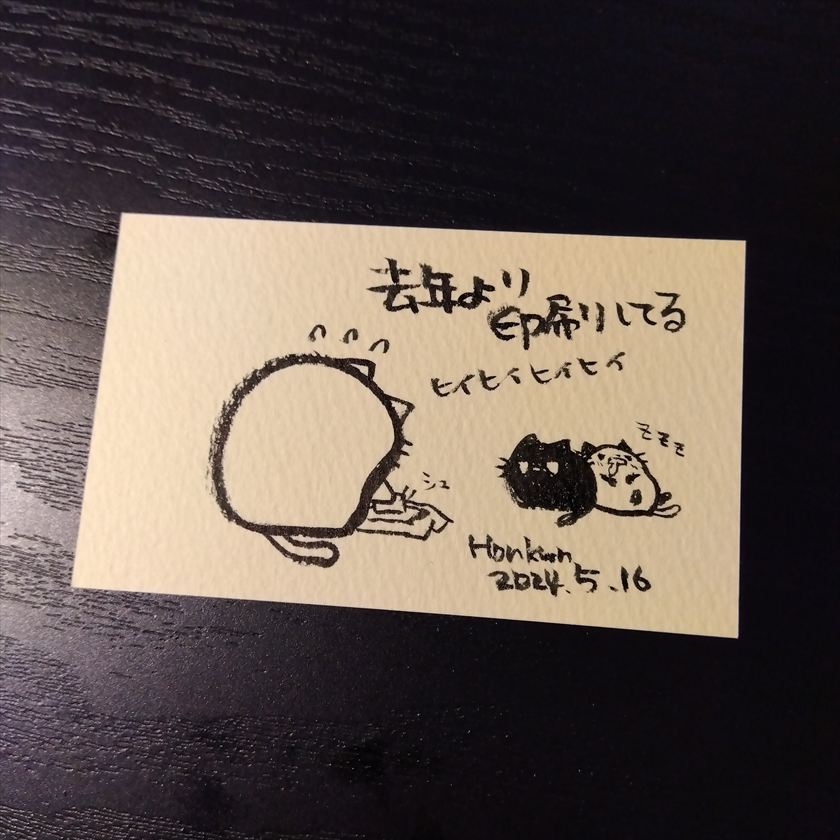 去年より
印刷りしてる
ヒイヒイヒイヒイ
シュ
ZZZ
Honkun
2024.5.16